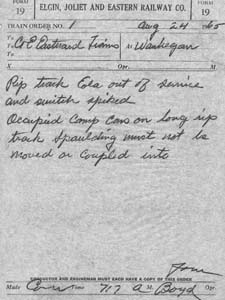 FORM 19
ELGIN, JOLIET AND EASTERN RAILWAY CO.
FORM 19
TRAIN ORDER NO. 1 Aug 24
To C&E Eastward Trains At Waukegan
To At
X Opr. M
Rip track Eola out of service
and switch spiked
Occupied Camp Cars on long rip
track Spaulding must not be
moved or coupled into
CONDUCTOR AND ENGINEMAN MUST EACH HAVE A COPY OF THIS ORDER
Made Com Time 717 A M. Boyd Opr.